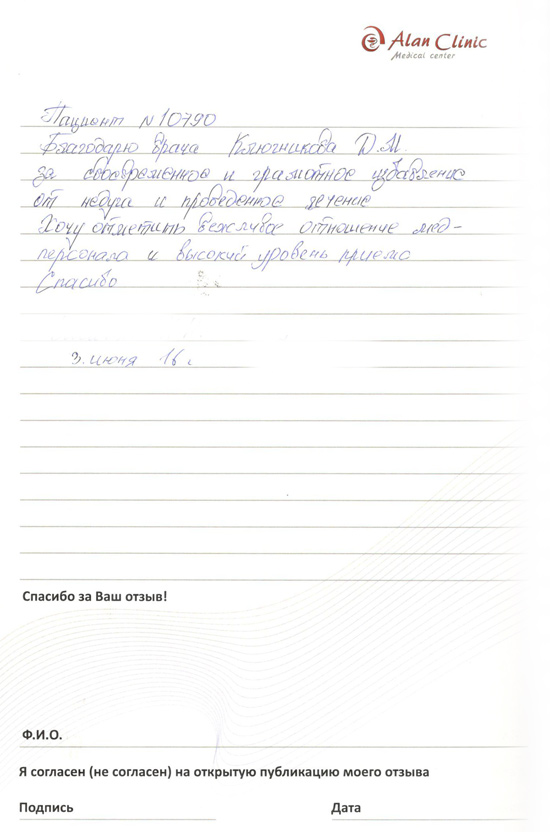 Alan Clinic
Medical center
Пациент N 10790
Благодарю врача Ключникова Д.М.
за своевременное и грамотное избавление
от недуга и проведенное лечение
Хочу отметить вежливое отношение мед-
персонала и высокий уровень приема
Спасибо
3. июня 16 г
Спасибо за Ваш отзыв!
Ф.И.О.
Я согласен (не согласен) на открытую публикацию моего отзыва
Подпись Дата